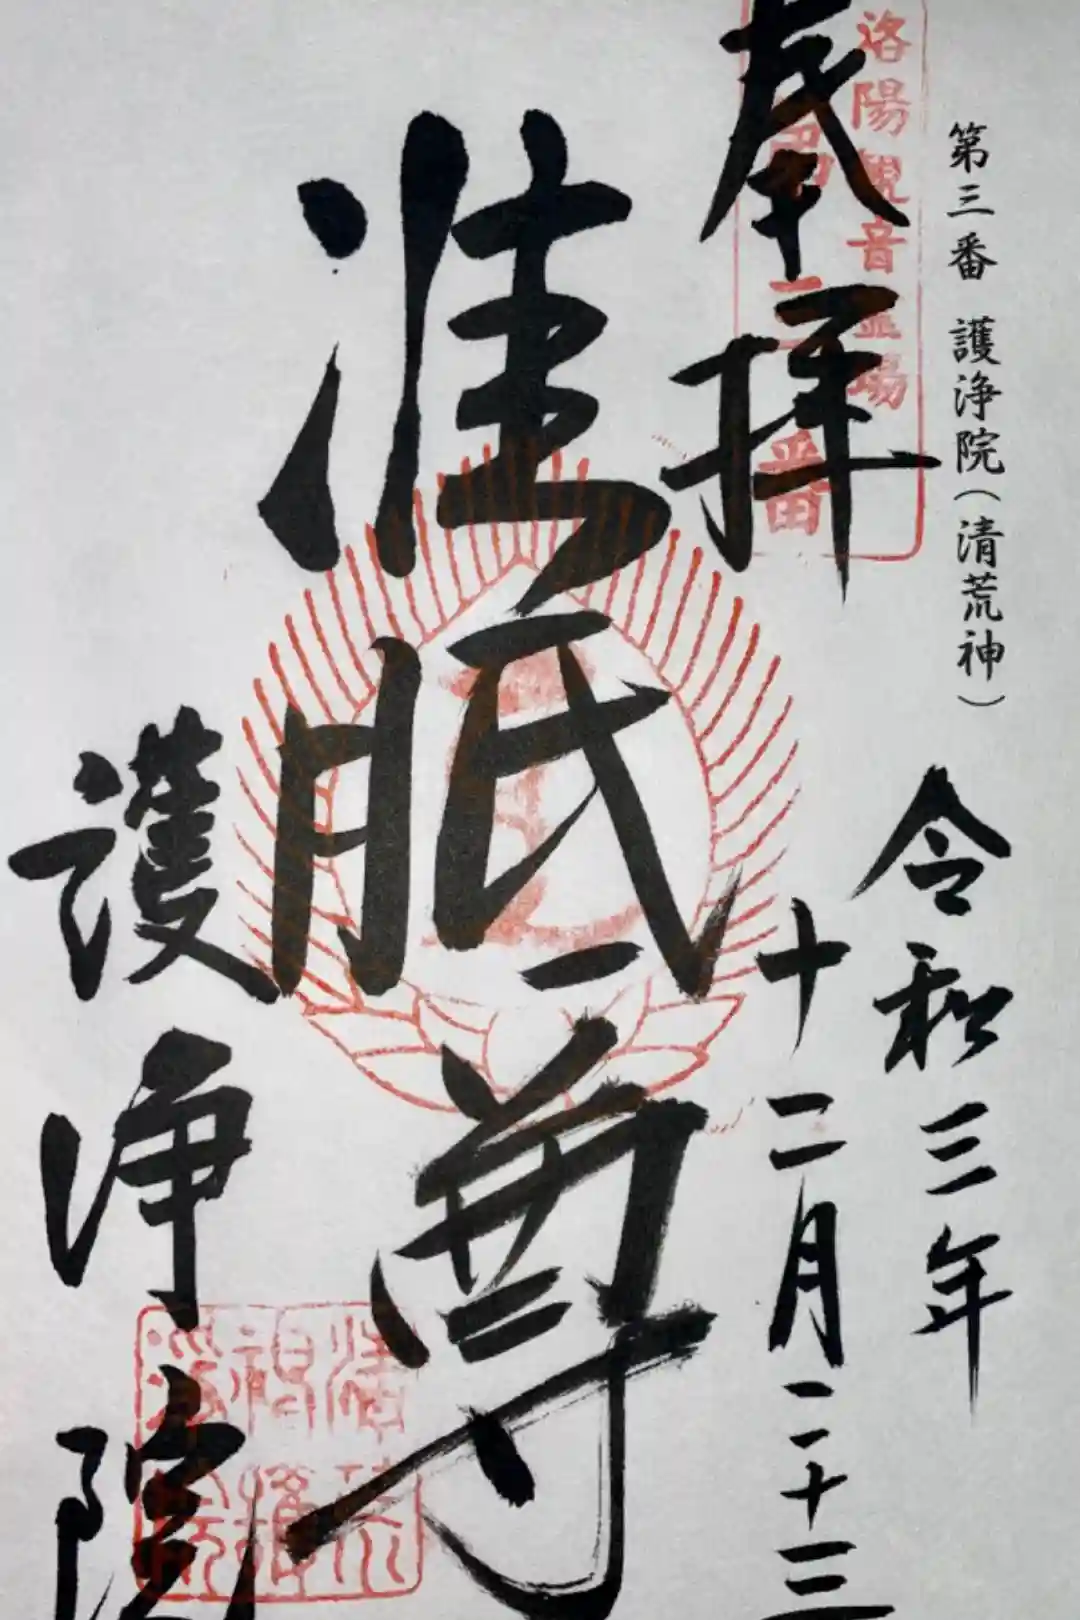 第三番 護浄院(清荒神)
令和三年
十二月二十三
奉拝
洛陽観音霊場
第三番
准胝尊
護浄院
清荒神護浄院